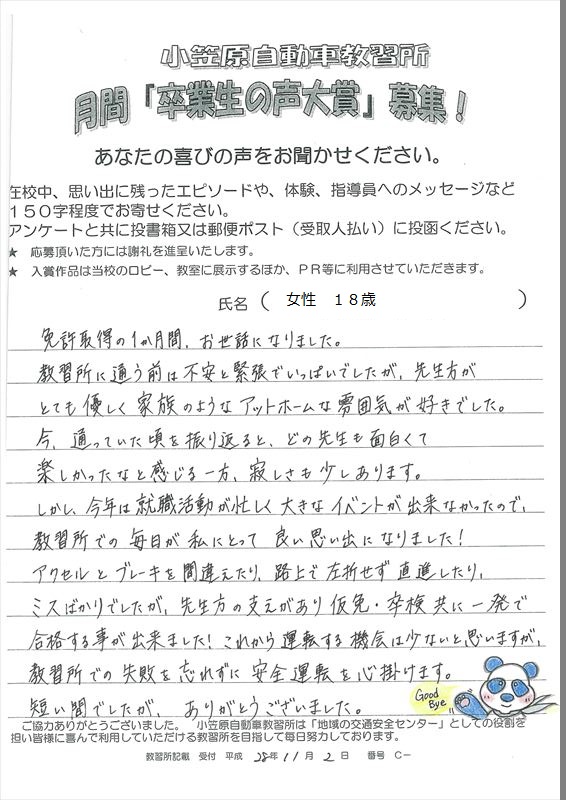 小笠原自動車教習所
月間「卒業生の声大賞」募集！
あなたの喜びの声をお聞かせください。
在校中、思い出に残ったエピソードや、体験、指導員へのメッセージなど
１５０字程度でお寄せください。
アンケートと共に投書箱又は郵便ポスト（受取人払い）に投函ください。
★ 応募頂いた方には謝礼を進呈いたします。
★ 入賞作品は当校のロビー、教室に展示するほか、ＰＲ等に利用させていただきます。
氏名（ 女性 １８歳 ）
免許取得の1か月間、お世話になりました。
教習所に通う前は不安と緊張でいっぱいでしたが、先生方が
とても優しく家族のようなアットホームな雰囲気が好きでした。
今、通っていた頃を振り返ると、どの先生も面白くて
楽しかったなと感じる一方、寂しさも少しあります。
しかし、今年は就職活動が忙しく大きなイベントが出来なかったので、
教習所での毎日が私にとって良い思い出になりました！
アクセルとブレーキを間違えたり、路上で左折せず直進したり、
ミスばかりでしたが、先生方の支えがあり仮免・卒検共に一発で
合格する事が出来ました！これから運転する機会は少ないと思いますが、
教習所での失敗を忘れずに安全運転を心掛けます。
短い間でしたが、ありがとうございました。
Good Bye
ご協力ありがとうございました。 小笠原自動車教習所は「地域の交通安全センター」としての役割を
担い皆様に喜んで利用していただける教習所を目指して毎日努力しております。
教習所記載 受付 平成 28年 11月 2日 番号 C－